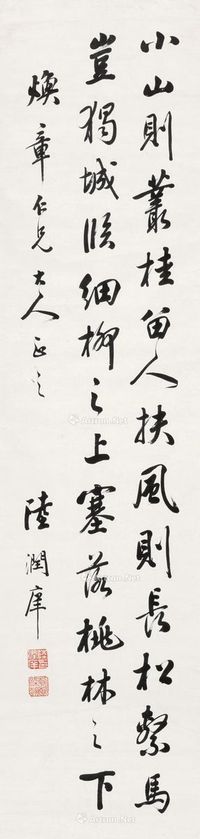 小山則叢桂留人扶風則長松繫馬
豈獨城臨細柳之上塞落桃林之下
煥章仁兄大人正之
陸潤庠